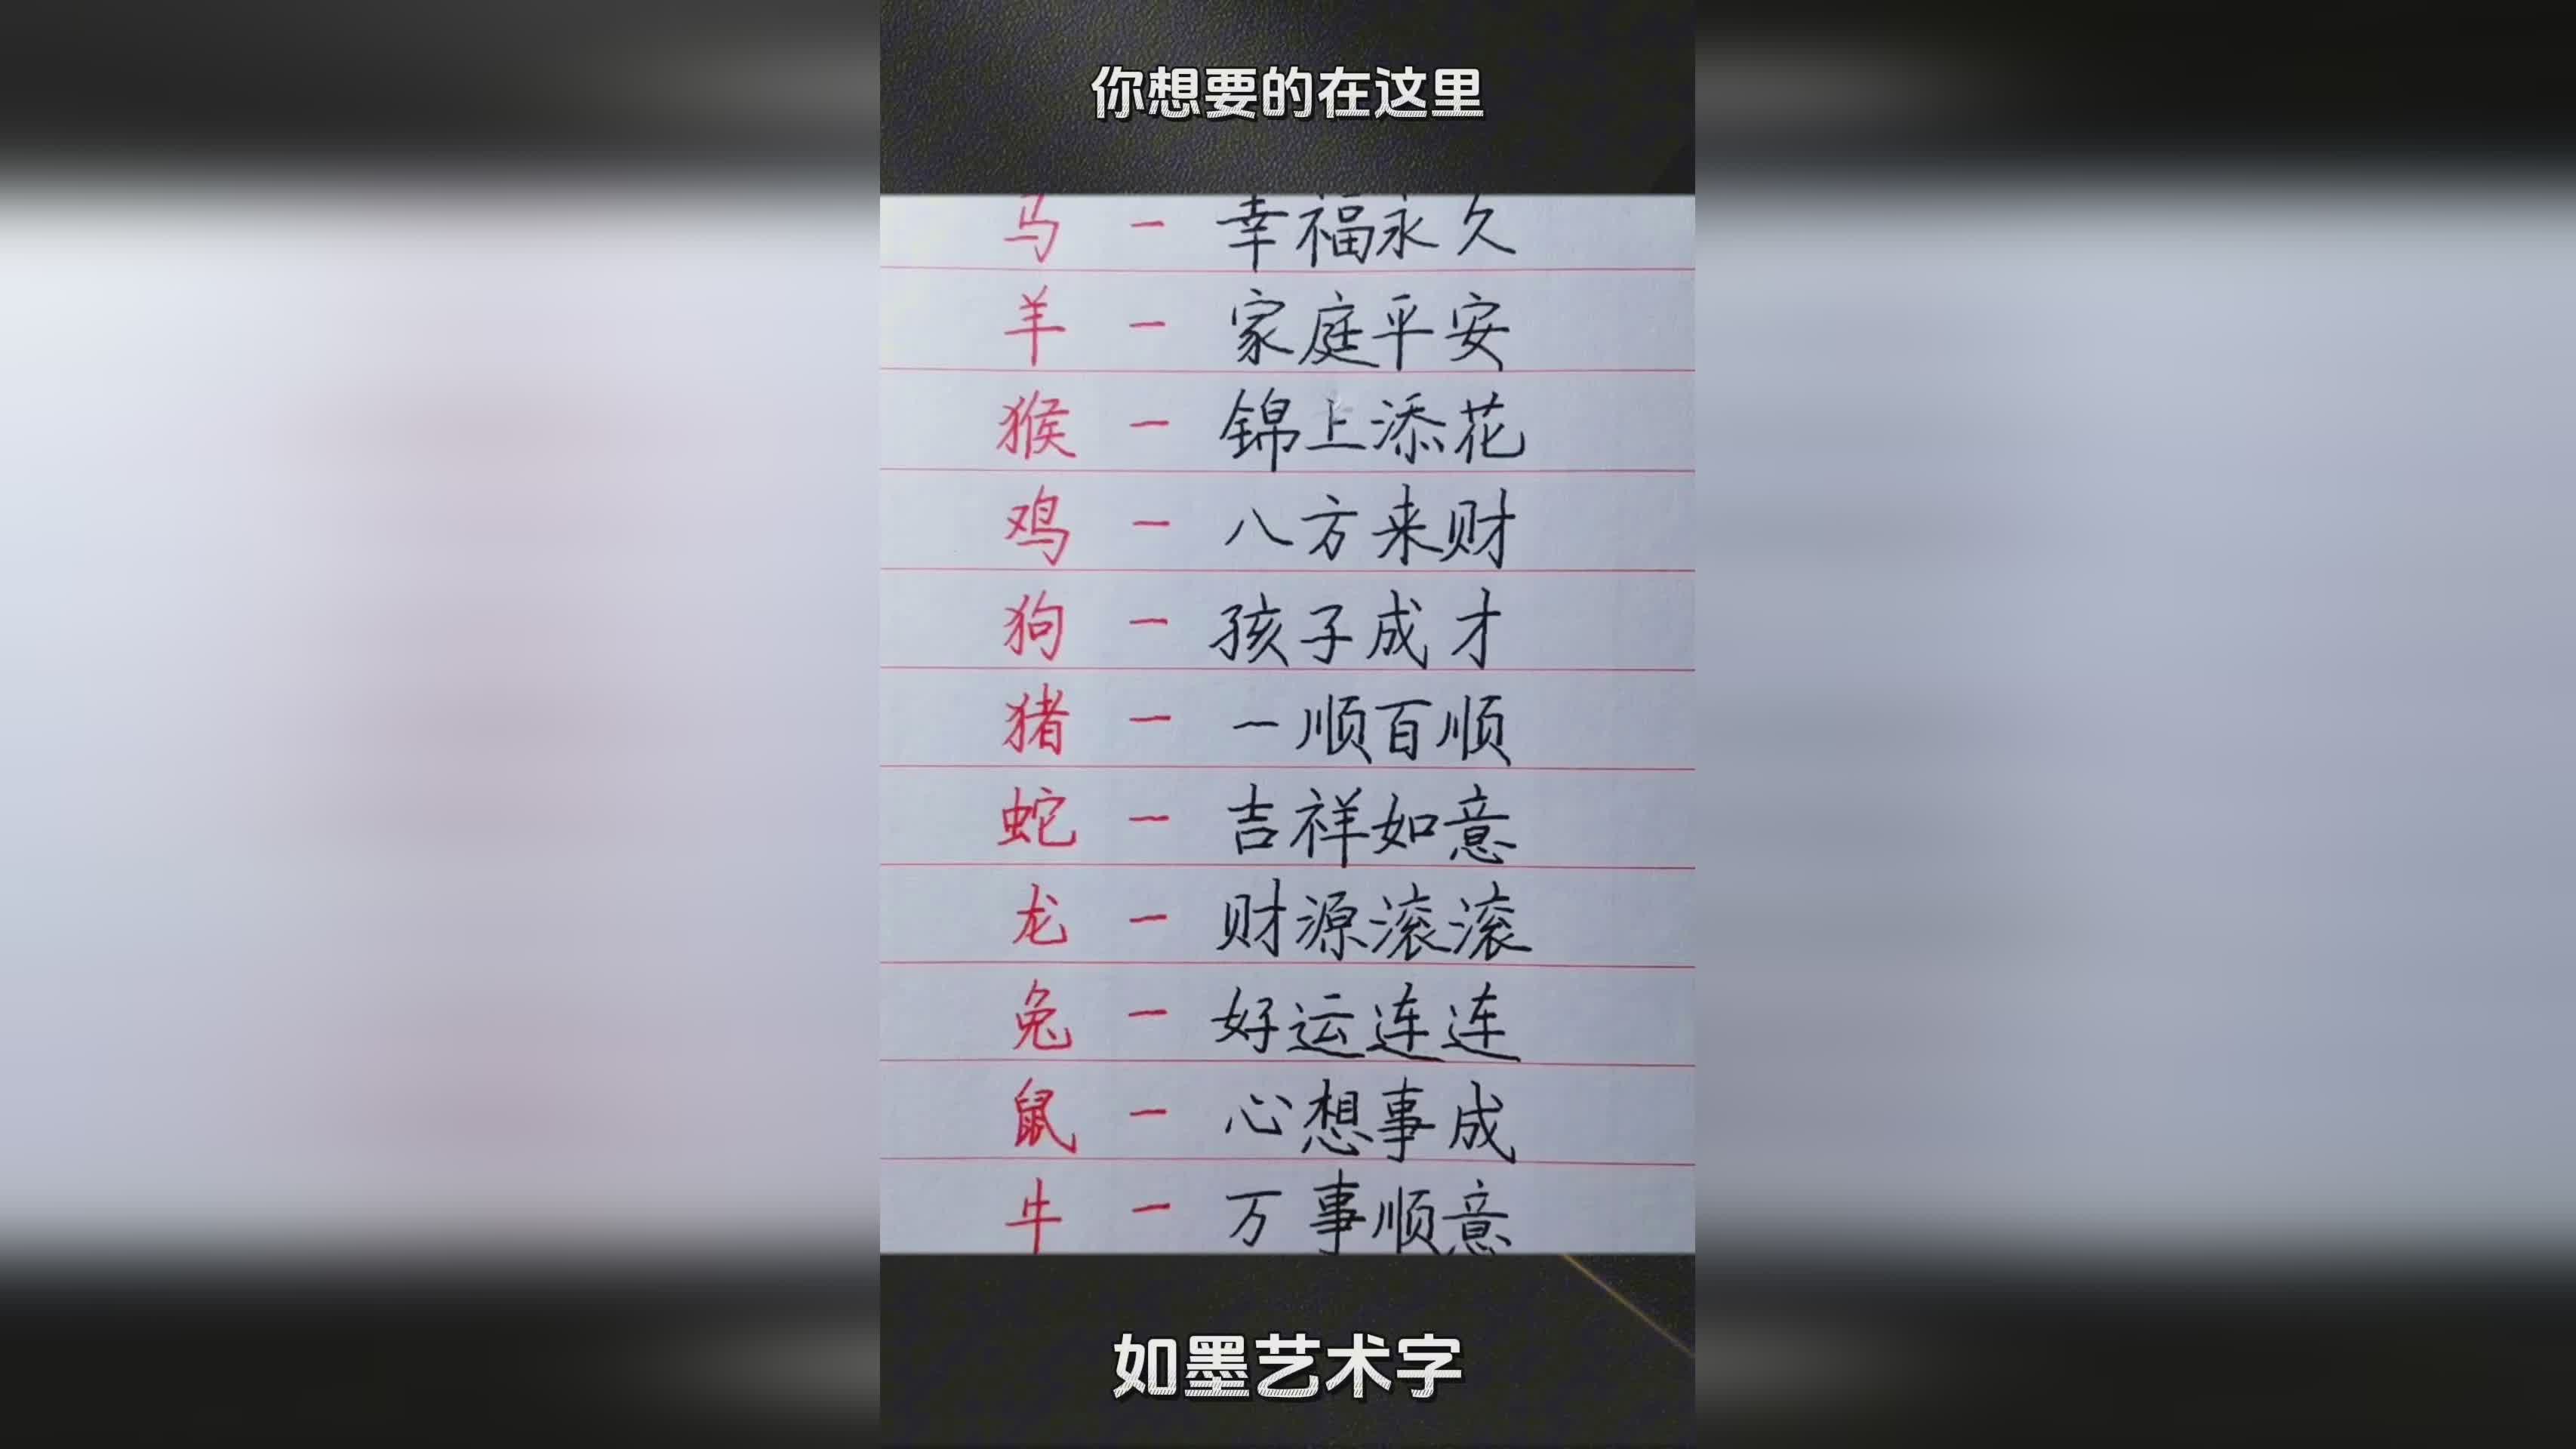 你想要的在这里
马 - 幸福永久
羊 - 家庭平安
猴 - 锦上添花
鸡 - 八方来财
狗 - 孩子成才
猪 - 一顺百顺
蛇 - 吉祥如意
龙 - 财源滚滚
兔 - 好运连连
鼠 - 心想事成
牛 - 万事顺意
如墨艺术字